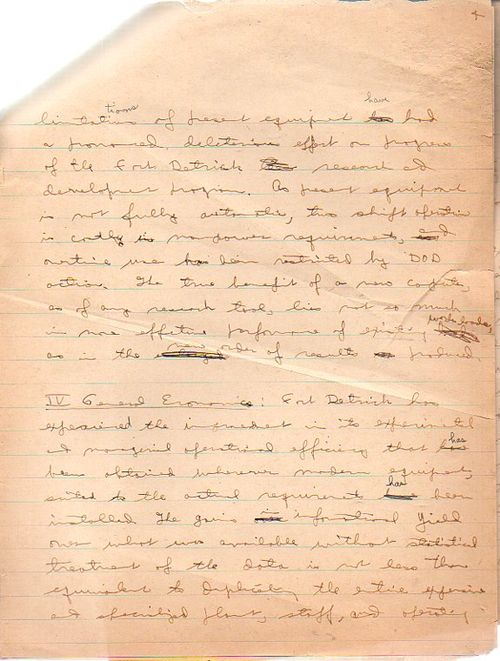 4
limitations of present equipment have had
a pronounced deleterious effect on progress
of the Fort Detrick research and
development program. As present equipment
is not fully automatic, two shift operation
is costly in manpower requirements, and
overtime use has been restricted by DOD
action. The true benefit of a new computer,
as of any research tool, lies not so much
in more effective performance of existing work loads
as in the new order of results produced.
IV General Economics: Fort Detrick has
experienced the increment in its experimental
and managerial operational efficiency that has
been obtained wherever modern equipment,
suited to the actual requirements has been
installed. The gains in informational yield
over what was available without statistical
treatment of the data is not less than
equivalent to duplicating the entire expensive
and specialized plant, staff, and operating